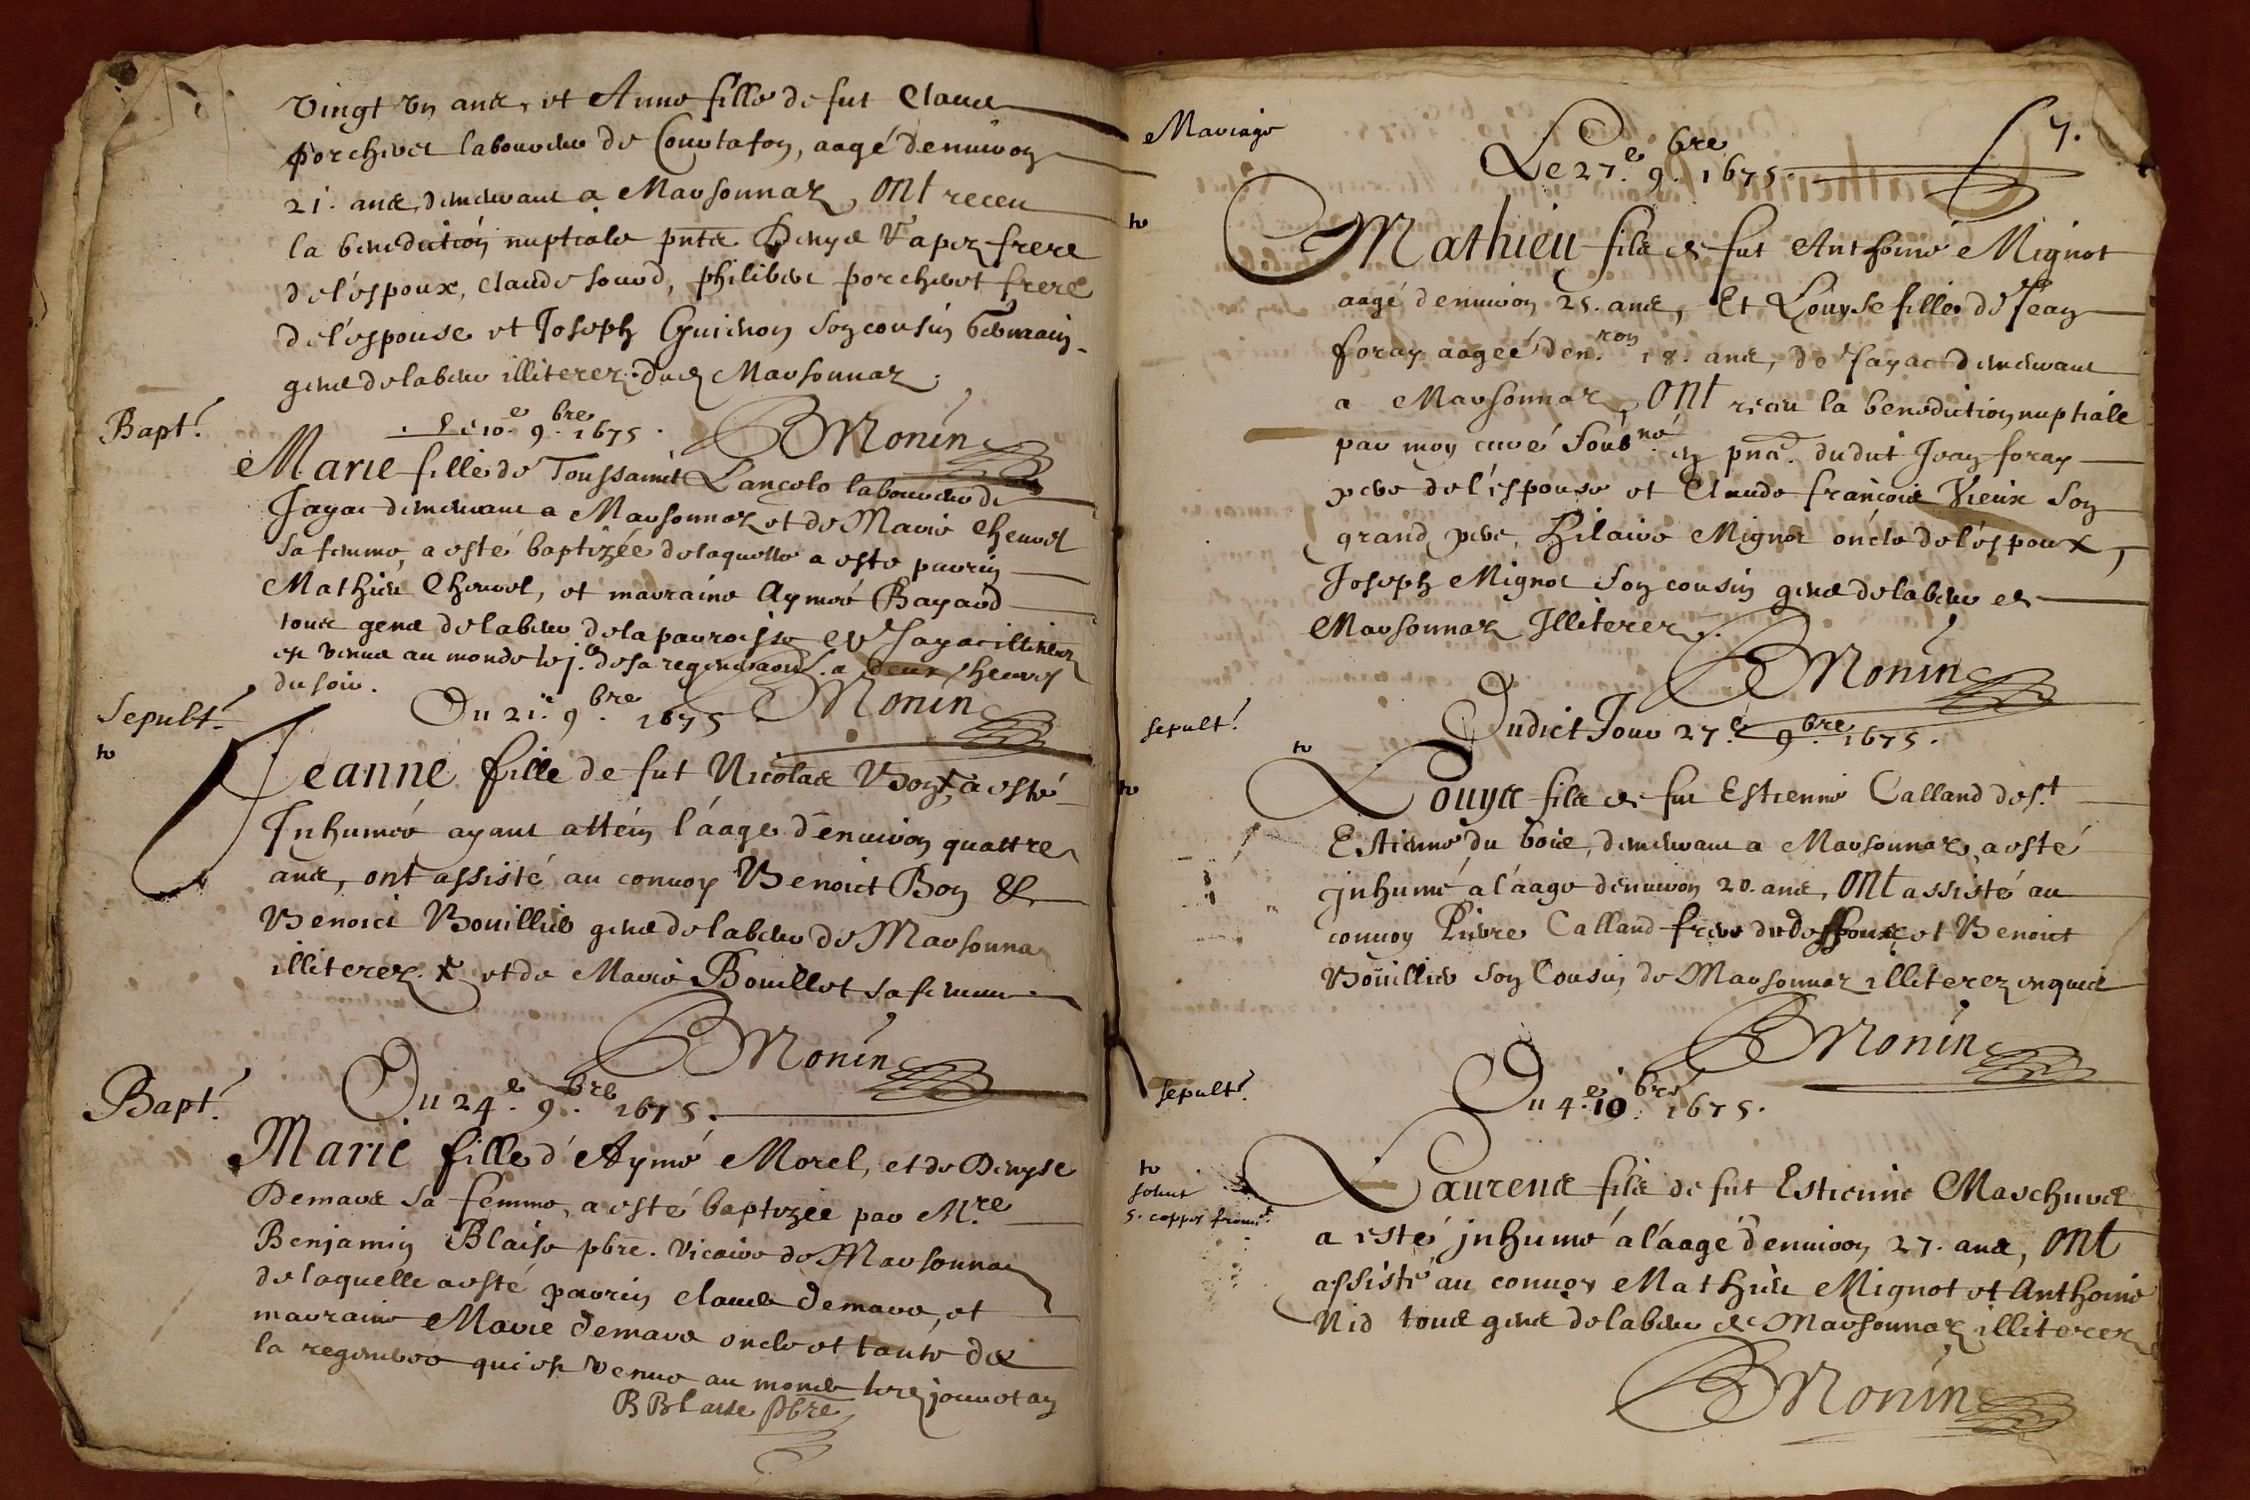 vingt un ans, et Anne fille de fut Claude
porcherel laboureur de Courtafon, aagé denuiron
21. ans, demeurant a Marsonnaz, ont receu
la benediction nuptiale pnts Denys Vapez frere
de l'espoux, Claude Sourd, philibert porcherot frere
de l'espouse et Joseph Guichon son cousin germain
gens de labeur illiterez. dud Marsonnaz.
Bapt.
Le 10.e 9.bre 1675.
BMonin
Marie fille de Toussainct Lançelo laboureur de
Jayac demeurant a Marsonnaz et de Marie Cheurel
sa femme, a esté baptizée de laquelle a esté parrin
Mathieu Cheurel, et marraine Aymeé Bayard
tous gens de labeur de la parroisse de Jayac illiterez
est venue au monde le j. de sa regeneraon a deux heures
du soir.
BMonin
Sepult.
Du 21.e 9.bre 1675
to
Jeanne fille de fut Nicolas Bon x, a esté
Inhumée ayant attein l'áage d'enuiron quattre
ans, ont assisté au conuoy Benoict Bon &
Benoict Bouillier gens de labeur de Marsonna
illiterez. x et de Marie Bouillot sa femme
BMonin
Bapt.
Du 24.e 9.bre 1675.
Marie fille d'Aymé Morel, et de Denyse
Demare sa femme, a esté baptizée par M.re
Benjamin Blaise pbre. Vicaire de Marsonnaz
de laquelle a esté parrin Claude Demare, et
marraine Marie Demare oncle et tante de
la regeneree qui est venue au monde led jour et an
B Blaise pbre
7.
Mariage
Le 27.e 9.bre 1675.
to
Mathieu fils de fut Anthoine Mignot
aagé d'enuiron 25. ans, Et Louyse fille de Jean
foray aageé den.ron 18. ans, de Jayac demeurant
a Marsonnaz, ont receu la benediction nuptiale
par moy curé soub.né en pnce. dudict Jean foray
pere de l'espouse et Claude françois Vieux son
grand pere, Hilaire Mignot oncle de l'espoux,
Joseph Mignot son cousin gens de labeur de
Marsonnaz Illiterez.
BMonin
sepult.
Dudict Jour 27.e 9.bre 1675.
to
to
Louys fils de fut Estienne Calland de S.t
Estienne du bois, demeurant a Marsonnaz, a esté
jnhumé a l'áage d'enuiron 20. ans, ont assisté au
conuoy Pierre Calland frere du deffunct et Benoict
Boüillier son Cousin de Marsonnaz illiterez enquis
BMonin
sepult.
Du 4.e 10.bre 1675.
to
soluit
5. coppes from.t
Laurens fils de fut Estienne Mascheurel
a esté jnhumé a l'áage d'enuiron 27. ans, ont
assisté au conuoy Mathieu Mignot et Anthoine
Nid tous gens de labeur de Marsonnaz illiterez
BMonin